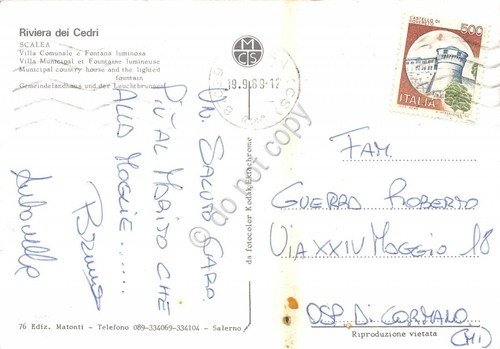 Riviera dei Cedri
SCALEA
Villa Comunale e Fontana luminosa
Villa Municipal et Fountaine lumineuse
Municipal country horse and the lighted
fountain
Gemeindelandhaus und der Leuchtbrunnen
MCS
19.9.89-17
500
CASTELLO DI
ITALIA
UN SALUTO CARO,
PIÙ AL MARITO CHE
ALLA MOGLIE......
Bruno
Antonella
da fotocolor Kodak Ektachrome
© do not copy
FAM.
GUERRA ROBERTO
VIA XXIV MAGGIO 18
OSP. DI CORMANO
(MI)
76 Ediz. Matonti - Telefono 089-334069-334104 - Salerno
Riproduzione vietata